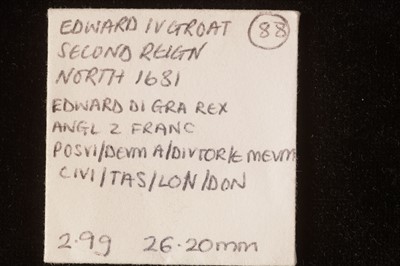 EDWARD IV GROAT 88
SECOND REIGN
NORTH 1631
EDWARD DI GRA REX
ANGL Z FRANC
POSVI/DEVM A/DIVTOR/E MEVM
CIVI/TAS/LON/DON
2.9g 26.20mm